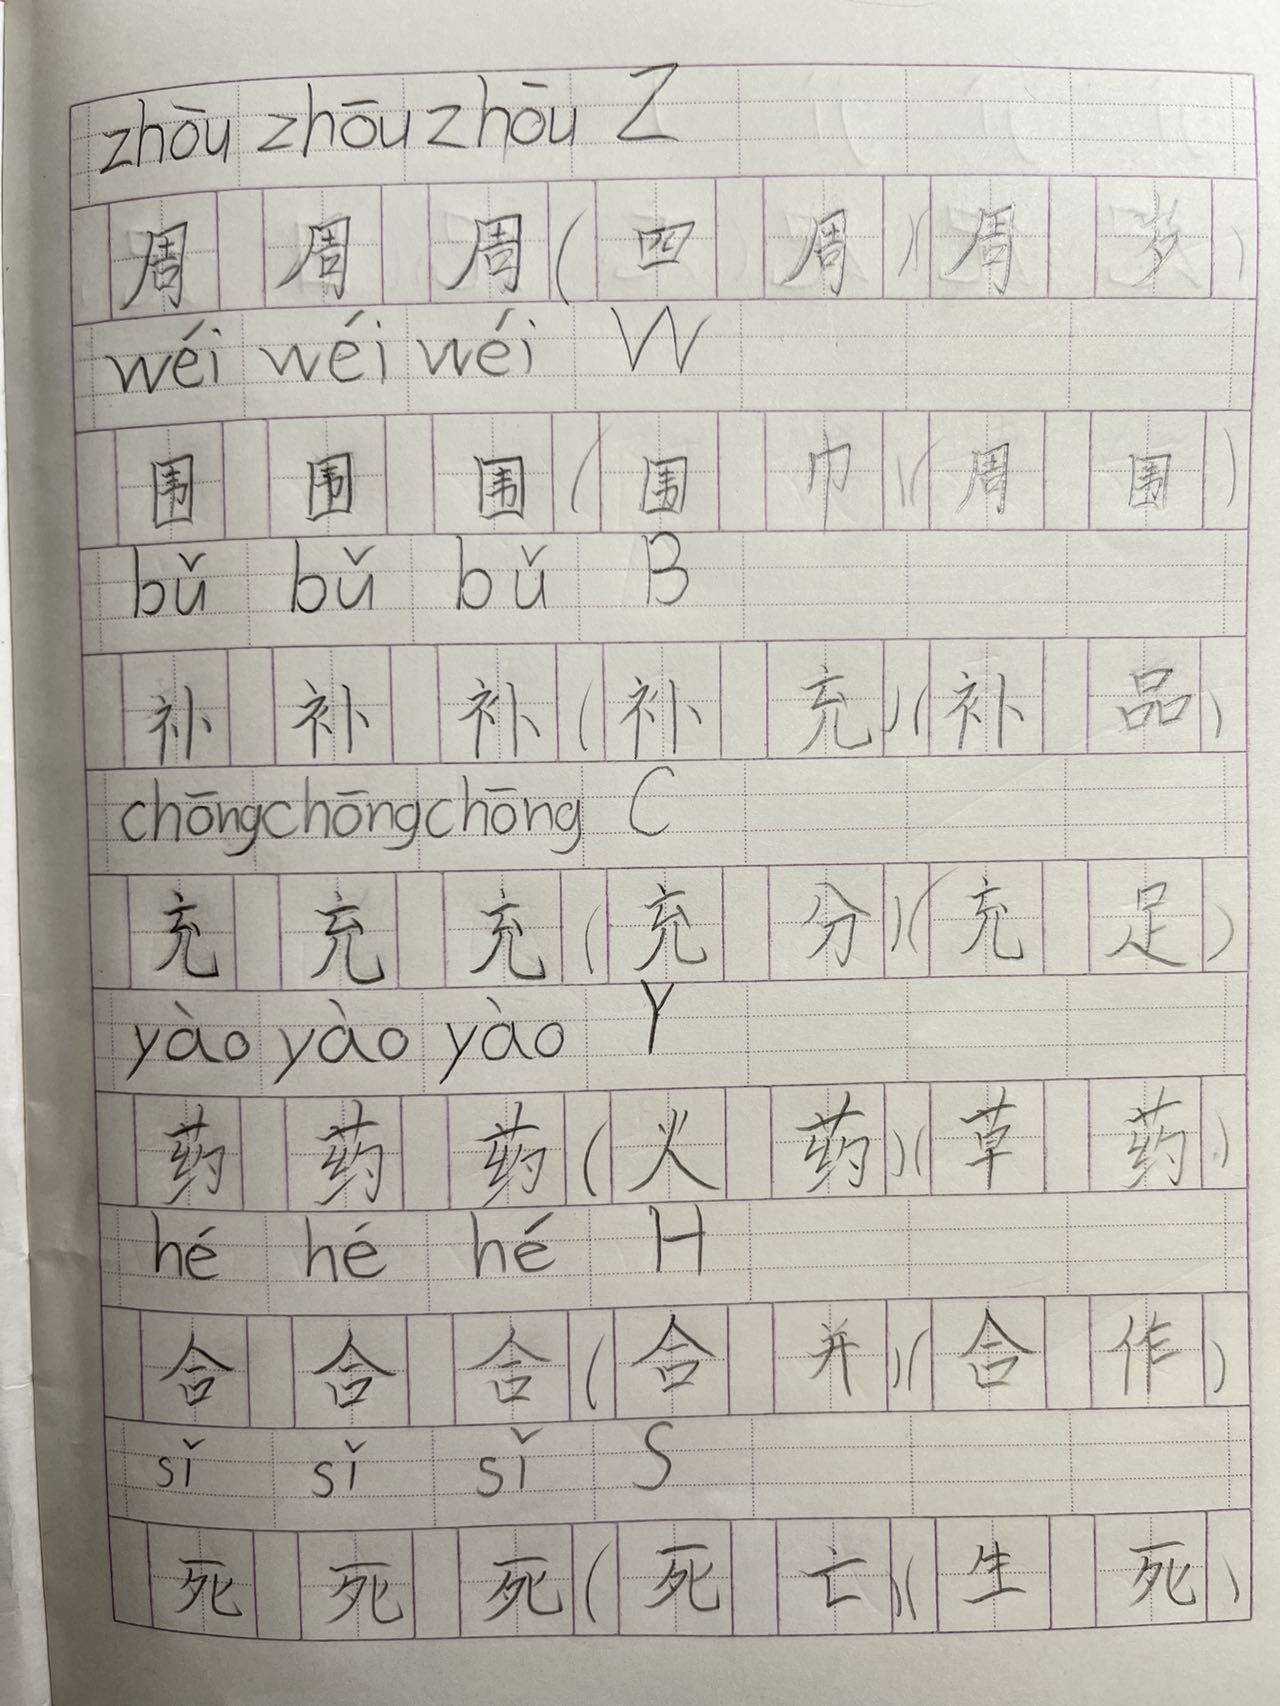 zhōu zhōu zhōu Z
周 周 周 ( 四 周 ) ( 周 岁 )
wéi wéi wéi W
围 围 围 ( 围 巾 ) ( 周 围 )
bǔ bǔ bǔ B
补 补 补 ( 补 充 ) ( 补 品 )
chōng chōng chōng C
充 充 充 ( 充 分 ) ( 充 足 )
yào yào yào Y
药 药 药 ( 火 药 ) ( 草 药 )
hé hé hé H
合 合 合 ( 合 并 ) ( 合 作 )
sǐ sǐ sǐ S
死 死 死 ( 死 亡 ) ( 生 死 )